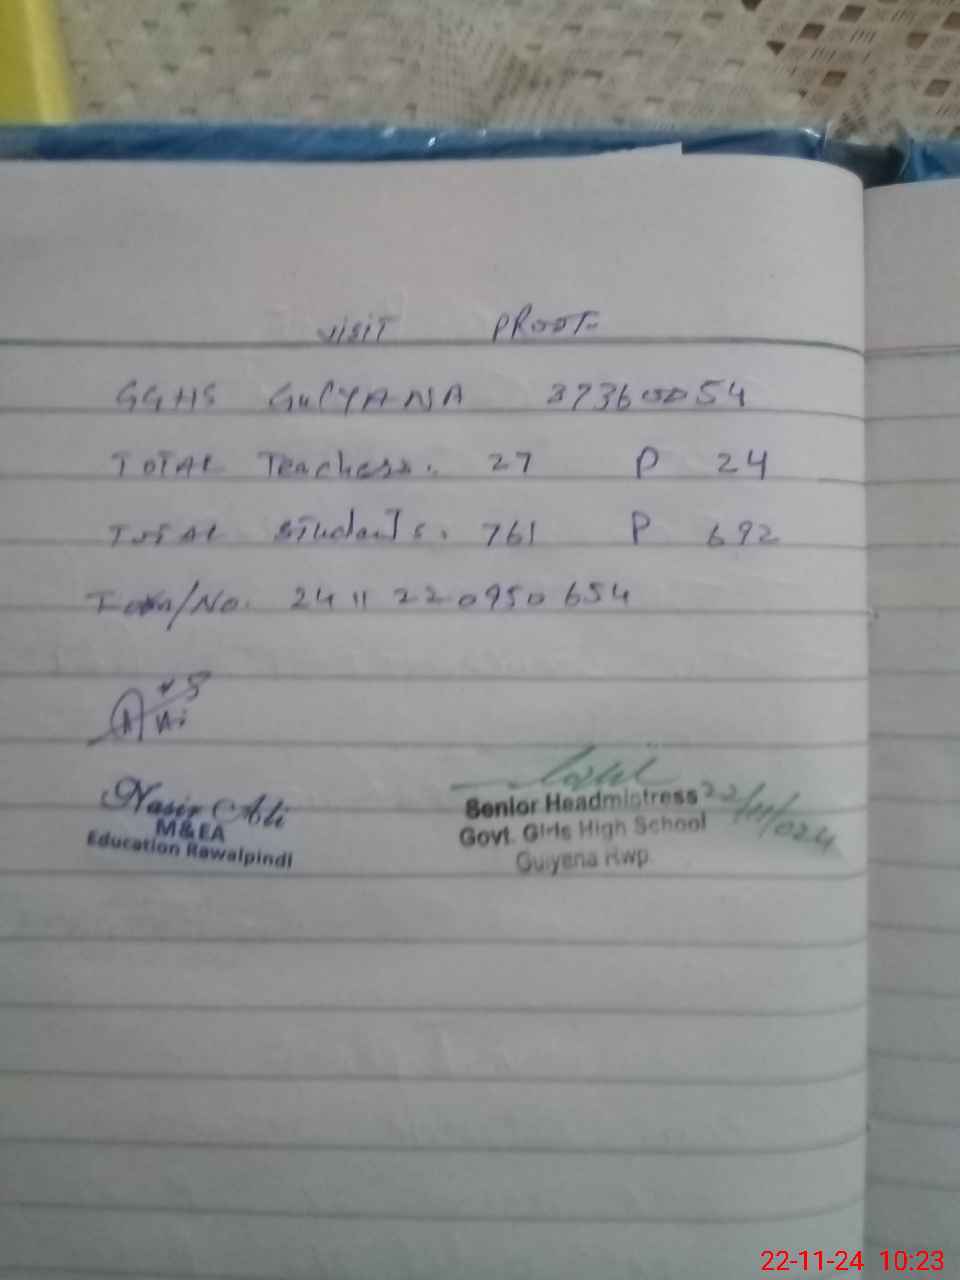 VISIT PROOF
GGHS GULYANA 37360054
TOTAL Teachers. 27 P 24
TOTAL Students. 761 P 692
/No. 2411220950654
Nasir Ali
M&EA
Education Rawalpindi
Senior Headmistress 22/11/024
Govt. Girls High School
Gulyana Rwp.
22-11-24 10:23